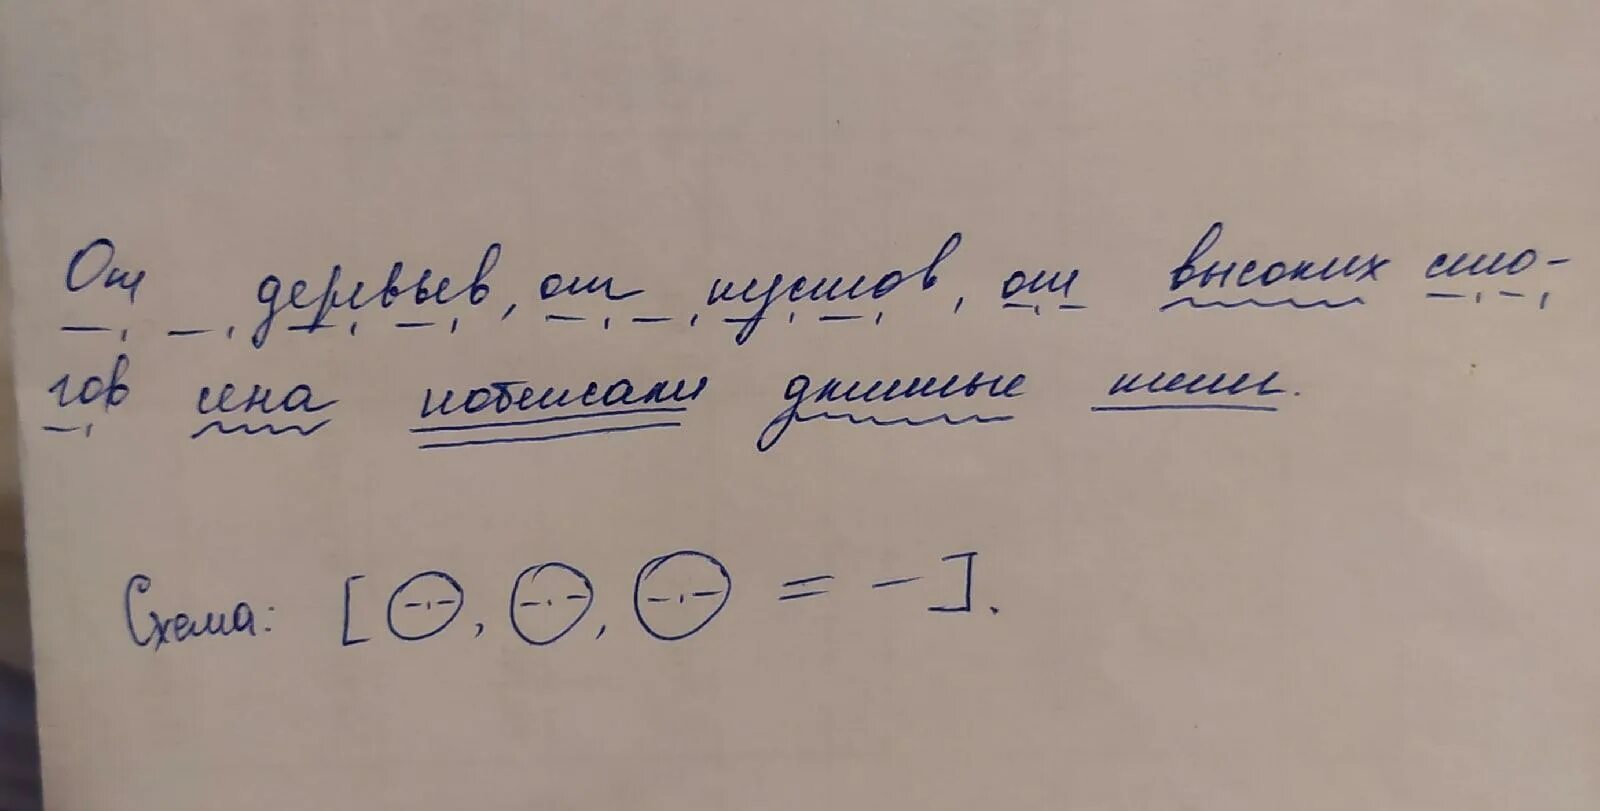 От деревьев, от кустов, от высоких сто-
гов сена побежали длинные тени.
Схема: [ -·- , -·- , -·- = - ].